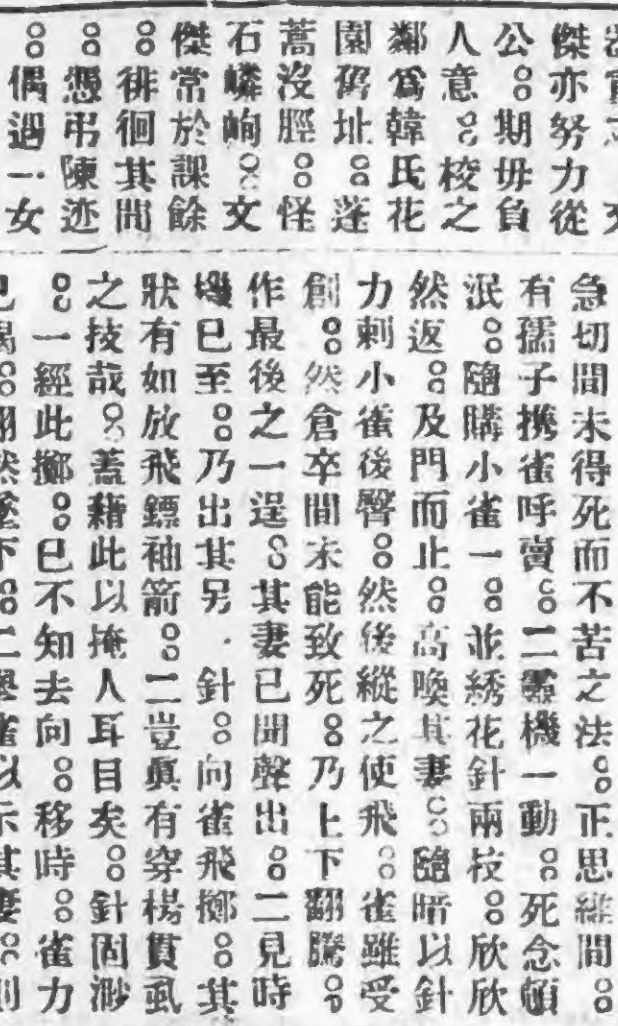 傑亦努力從
公。期毋負
人意。校之
鄰爲韓氏花
園舊址。蓬
蒿沒脛。怪
石嶙峋。文
傑常於課餘
。徘徊其間
。憑弔陳迹
。偶遇一女
急切間未得死而不苦之法。正思維間。
有孺子携雀呼賣。二靈機一動。死念頓
泯。隨購小雀一。並綉花針兩枝。欣欣
然返。及門而止。高喚其妻。隨暗以針
力刺小雀後臀。然後縱之使飛。雀雖受
創。然倉卒間未能致死。乃上下翻騰。
作最後之一逞。其妻已聞聲出。二見時
機已至。乃出其另一針。向雀飛擲。其
狀有如放飛鏢袖箭。二豈眞有穿楊貫虱
之技哉。蓋藉此以掩人耳目矣。針固渺
。一經此擲。已不知去向。移時。雀力
已竭。翩然墜下。二舉雀以示其妻。則